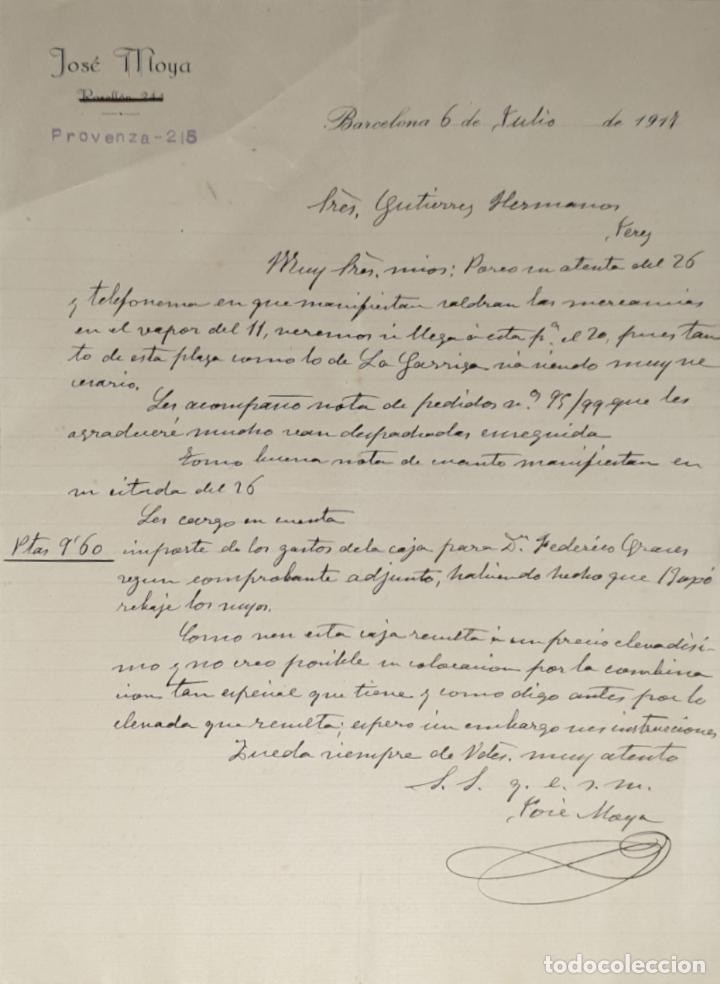 José Moya
Rosellón 244
Provenza-218
Barcelona 6 de Julio de 1917
Srès. Gutierrez Hermanos
Xerez
Muy Srès. mios: Poseo su atenta del 26
y telefonema en que manifiestan saldran las mercancias
en el vapor del 11, veremos si llega à esta pª. el 20, pues tan
to de esta plaza como lo de La Garriga va siendo muy ne
cesario.
Les acompaño nota de pedidos nº. 95/99 que les
agradeceré mucho sean despachadas enseguida
Tomo buena nota de cuanto manifiestan en
su citada del 26
Les cargo en cuenta
Ptas 9'60 importe de los gastos de la caja para Dn. Federico
segun comprobante adjunto, habiendo hecho que
rebaje los suyos.
Como ven esta caja resulta à un precio elevadisi-
mo y no creo posible su colocacion por la combina
cion tan especial que tiene y como digo antes por lo
elevada que resulta; espero sin embargo sus instrucciones
Queda siempre de Vdès. muy atento
S. S. q. e. s. m.
José Moya
todocoleccion.net